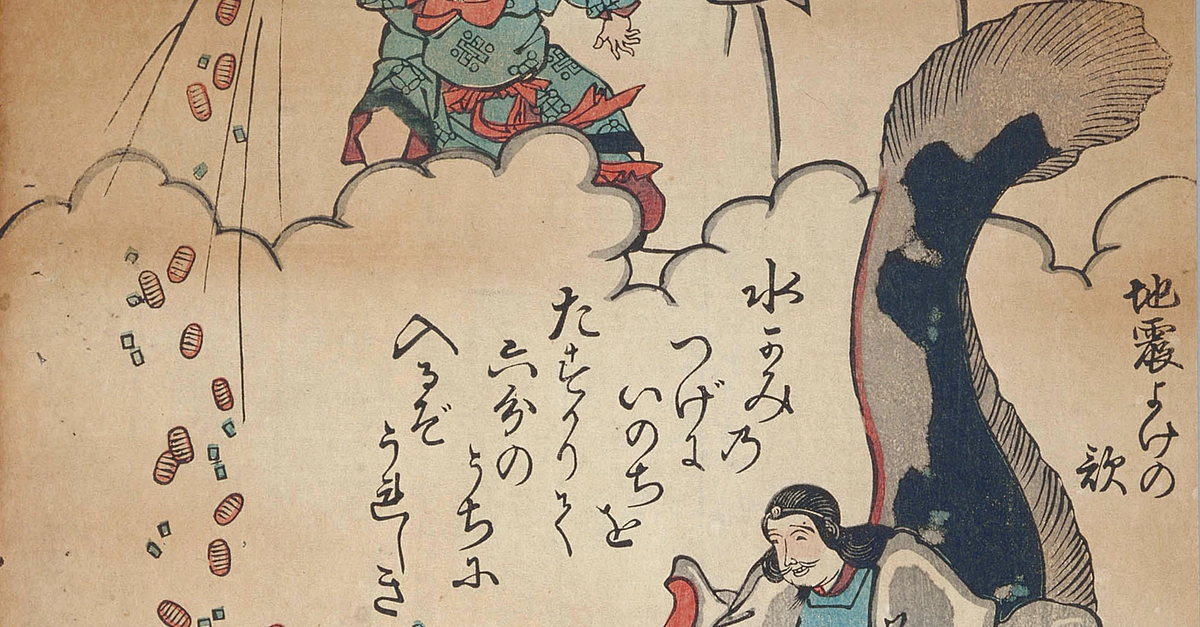 地震よけの
歌
水かみの
つげに
いのちを
たすかりて
六分の
うちに
入るぞ
うれしき